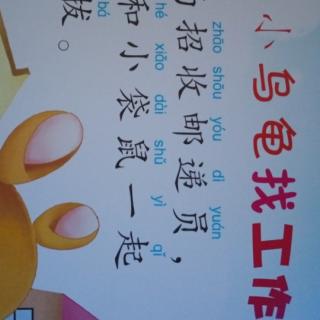 小乌龟找工作
zhāo shōu yóu dì yuán
招收邮递员，
hé xiǎo dài shǔ yì qǐ
和小袋鼠一起
bá
拔。